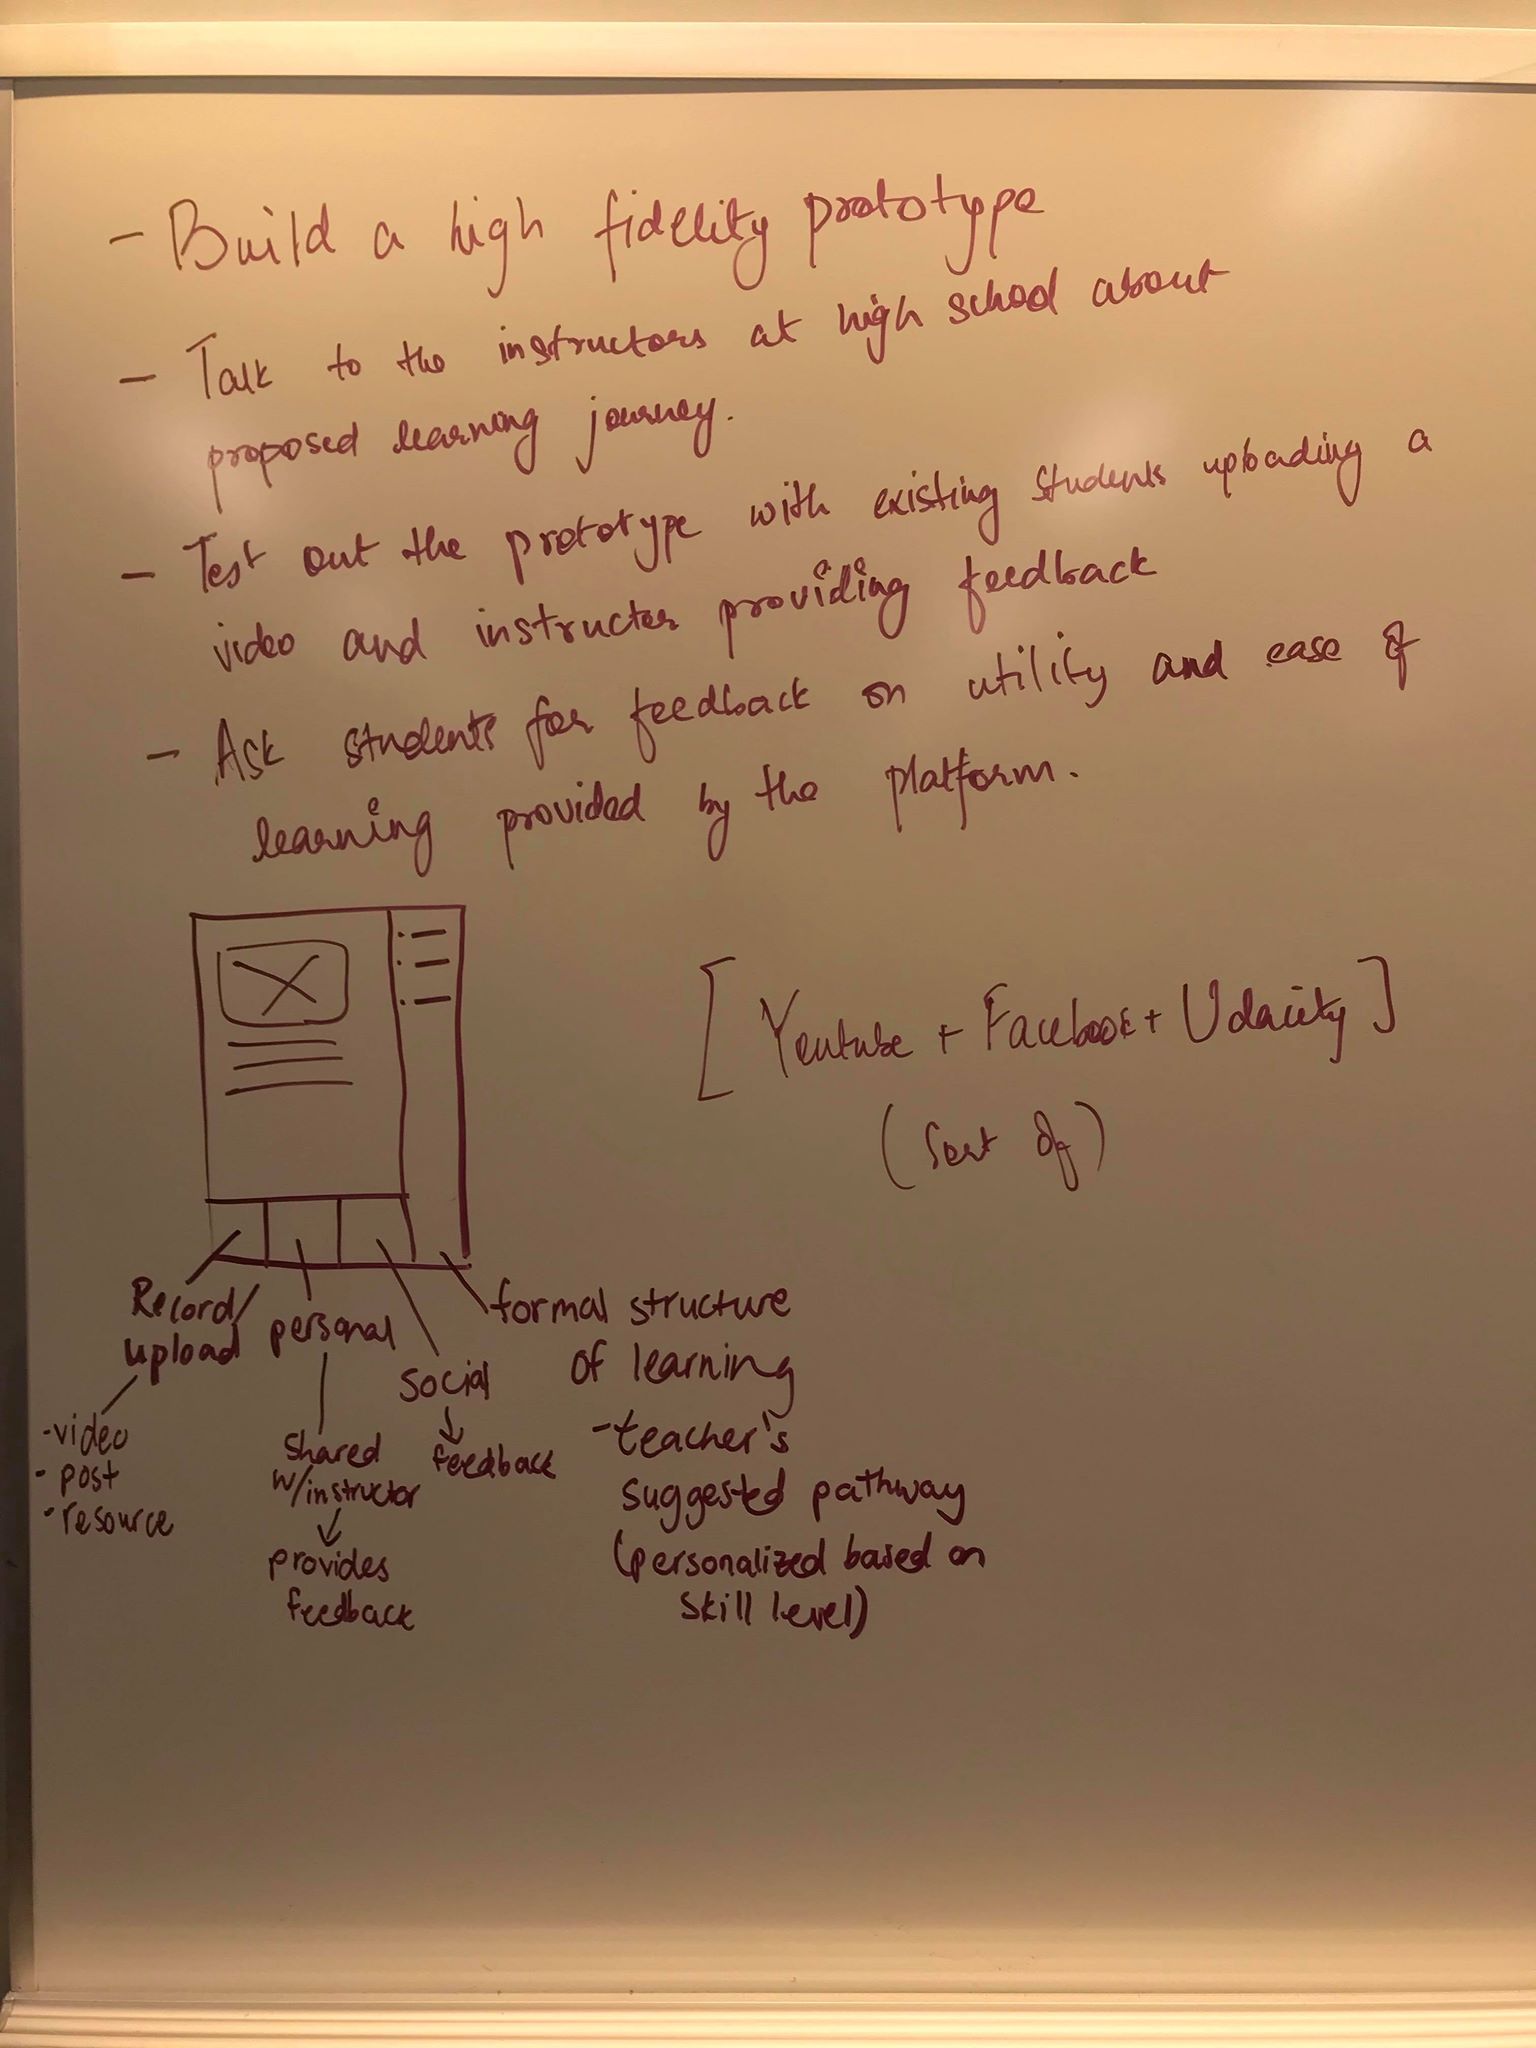 - Build a high fidelity prototype
- Talk to the instructors at high school about
proposed learning journey.
- Test out the prototype with existing students uploading a
video and instructor providing feedback
- Ask students for feedback on utility and ease of
learning provided by the platform.
[Youtube + Facebook + Udacity]
(Sort of)
Record/
upload
- video
- post
- resource
personal
shared
w/instructor
provides
feedback
social
feedback
formal structure
of learning
- teacher's
suggested pathway
(personalized based on
skill level)